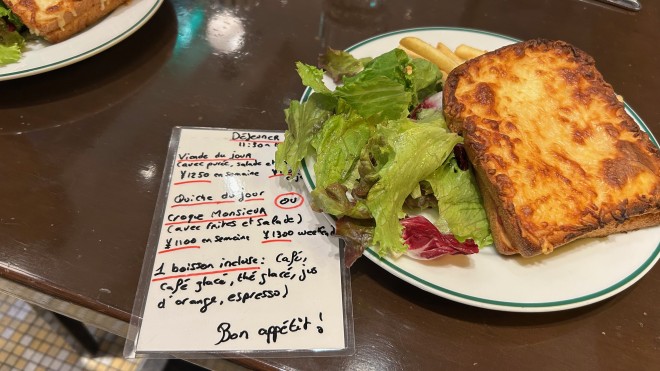 DÉJEUNER
11:30
Viande du jour
(avec purée, salade et
¥1250 en semaine
Quiche du jour
OU
Croque Monsieur
(avec frites et salade)
¥1100 en semaine ¥1300 weekend
1 boisson incluse: Café,
café glacé, thé glacé, jus
d'orange, espresso)
Bon appétit!